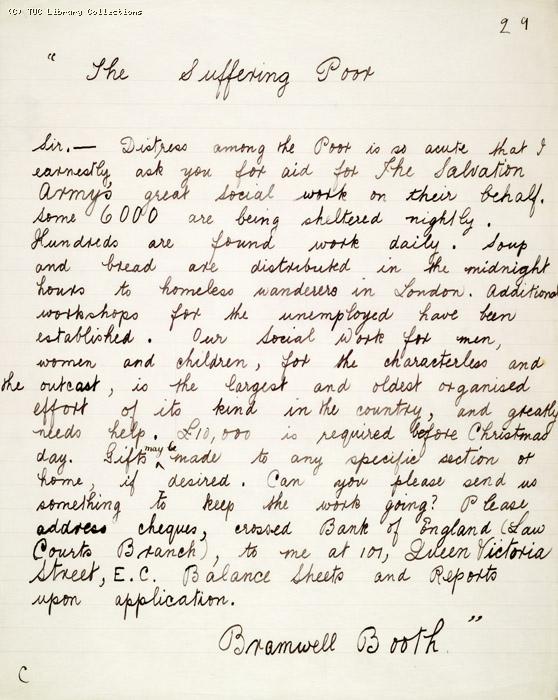 (C) TUC Library Collections
29
" The Suffering Poor
Sir. — Distress among the Poor is so acute that I
earnestly ask you for aid for The Salvation
Army's great Social work on their behalf.
Some 6000 are being sheltered nightly.
Hundreds are found work daily. Soup
and bread are distributed in the midnight
hours to homeless wanderers in London. Additional
workshops for the unemployed have been
established. Our Social Work for men,
women and children, for the characterless and
the outcast, is the largest and oldest organised
effort of its kind in the country, and greatly
needs help. £10,000 is required before Christmas
day. Gifts may be made to any specific section or
home, if desired. Can you please send us
something to keep the work going? Please
address cheques, crossed Bank of England (Law
Courts Branch), to me at 101, Queen Victoria
Street, E.C. Balance Sheets and Reports
upon application.
Bramwell Booth. "
C